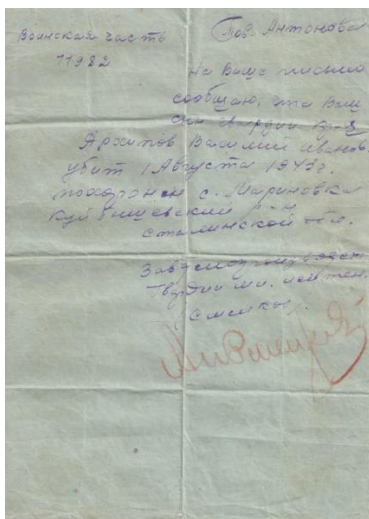 Воинская часть
11982
Тов. Антонова
На Ваше письмо
сообщаю, что Ваш
сын гвардии
Архипов Василий Иванов
убит 1 Августа 1943 г.
похоронен с. Мариновка
Куйбышевский р-н
Сталинской обл.
гвардии мл. лейтен.